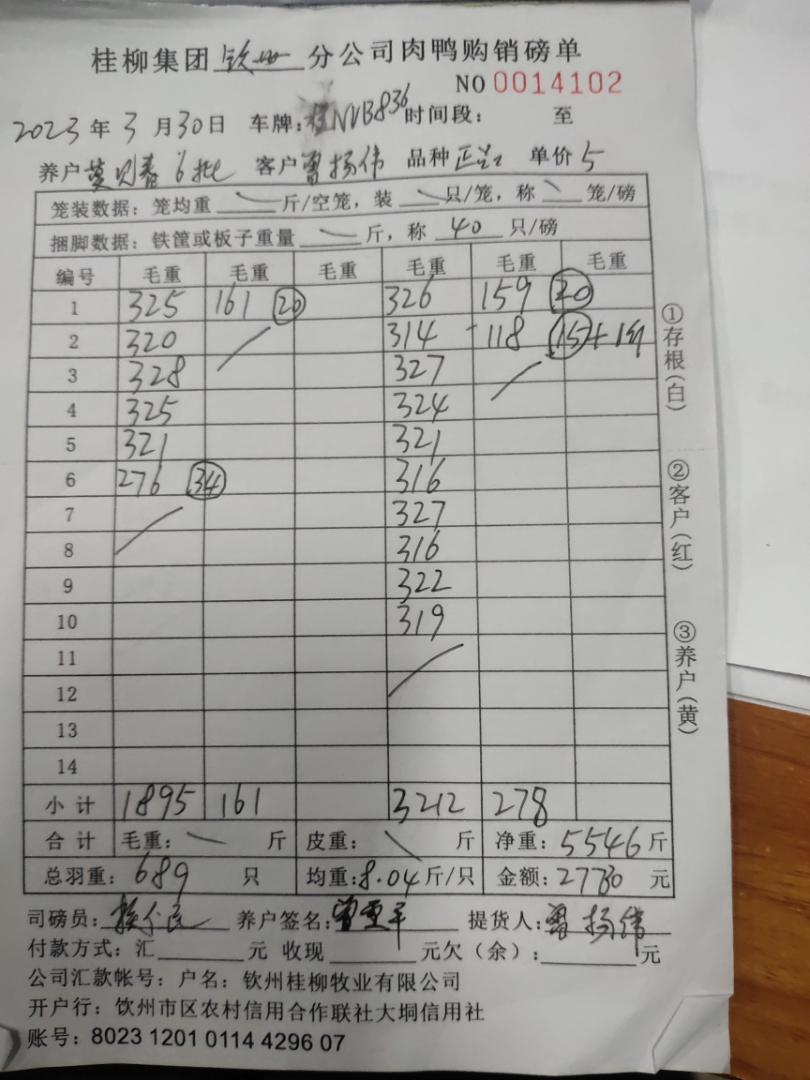 桂柳集团 钦州 分公司肉鸭购销磅单
NO 0014102
2023 年 3 月 30 日 车牌: 桂NVB836 时间段: 至
养户 黄则春 6批 客户 曾扬伟 品种 单价 5
笼装数据: 笼均重 斤/空笼, 装 只/笼, 称 笼/磅
捆脚数据: 铁筐或板子重量 斤, 称 40 只/磅
编号 毛重 毛重 毛重 毛重 毛重 毛重
1 325 161 20 326 159 20
2 320 314 118 15+1
3 328 327
4 325 324
5 321 321
6 276 34 316
7 327
8 316
9 322
10 319
11
12
13
14
小计 1895 161 3212 278
合计 毛重: 斤 皮重: 斤 净重: 5546 斤
总羽重: 689 只 均重: 8.04 斤/只 金额: 27730 元
司磅员: 养户签名: 提货人: 曾扬伟
付款方式: 汇 元 收现 元欠(余): 元
公司汇款帐号: 户名: 钦州桂柳牧业有限公司
开户行: 钦州市区农村信用合作联社大垌信用社
账号: 8023 1201 0114 4296 07
①存根(白)
②客户(红)
③养户(黄)